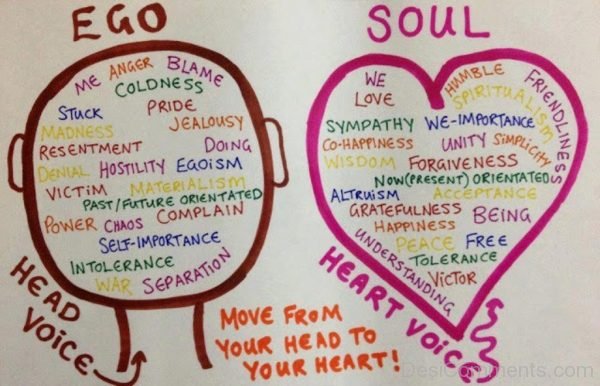 EGO
ME ANGER BLAME
COLDNESS
STUCK PRIDE
MADNESS JEALOUSY
RESENTMENT DOING
DENIAL HOSTILITY EGOISM
VICTIM MATERIALISM
PAST/FUTURE ORIENTATED
POWER CHAOS COMPLAIN
SELF-IMPORTANCE
INTOLERANCE
WAR SEPARATION
HEAD
VOICE
SOUL
WE HUMBLE FRIENDLINESS
LOVE SPIRITUALISM
SYMPATHY WE-IMPORTANCE
CO-HAPPINESS UNITY SIMPLICITY
WISDOM FORGIVENESS
NOW(PRESENT) ORIENTATED
ALTRUISM ACCEPTANCE
GRATEFULNESS BEING
HAPPINESS
UNDERSTANDING PEACE FREE
TOLERANCE
VICTOR
HEART VOICE
MOVE FROM
YOUR HEAD TO
YOUR HEART!
DesiComments.com